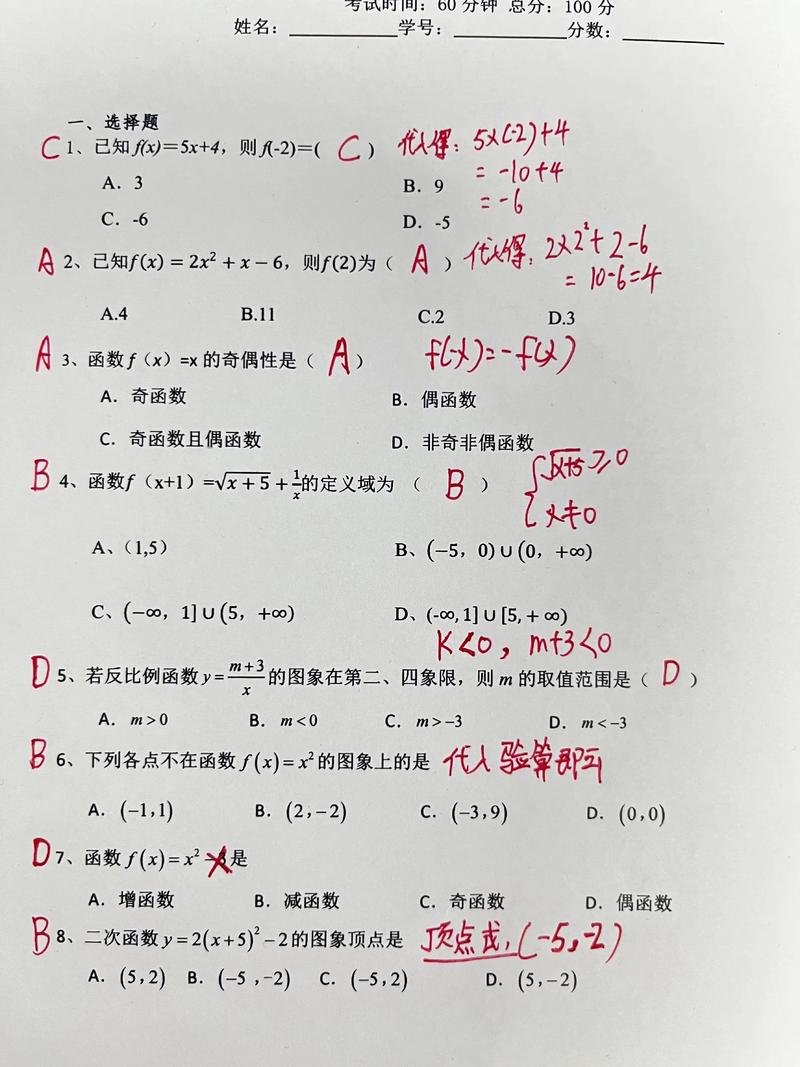 考试时间：60 分钟 总分：100 分
姓名：__________学号：__________分数：__________
一、选择题
C 1、已知 f(x)=5x+4，则 f(-2)=( C ) 代入得：5×(-2)+4
= -10+4
= -6
A．3 B．9
C．-6 D．-5
A 2、已知f(x) = 2x² + x − 6，则f(2)为（ A ） 代入得：2×2²+2-6
= 10-6=4
A.4 B.11 C.2 D.3
A 3、函数 f（x）=x 的奇偶性是（ A ） f(-x)=-f(x)
A．奇函数 B．偶函数
C．奇函数且偶函数 D．非奇非偶函数
B 4、函数f（x+1）=√x + 5 + 1/x的定义域为 （ B ） { √x+5 ≥0
x≠0
A、（1,5） B、(−5，0) ∪ (0，+∞)
C、(−∞，1] ∪ (5，+∞) D、(-∞, 1] ∪ [5, + ∞)
K<0，m+3<0
D 5、若反比例函数 y = m+3/x 的图象在第二、四象限，则 m 的取值范围是（ D ）
A．m > 0 B．m < 0 C．m > −3 D．m < −3
B 6、下列各点不在函数 f(x) = x² 的图象上的是 代入验算即可
A．(−1,1) B．(2,−2) C．(−3,9) D．(0,0)
D 7、函数 f(x) = x² 是
A．增函数 B．减函数 C．奇函数 D．偶函数
B 8、二次函数 y = 2(x+5)² − 2 的图象顶点是 顶点式，(-5,-2)
A．(5,2) B．(−5 ,−2) C．(−5,2) D．(5,−2)